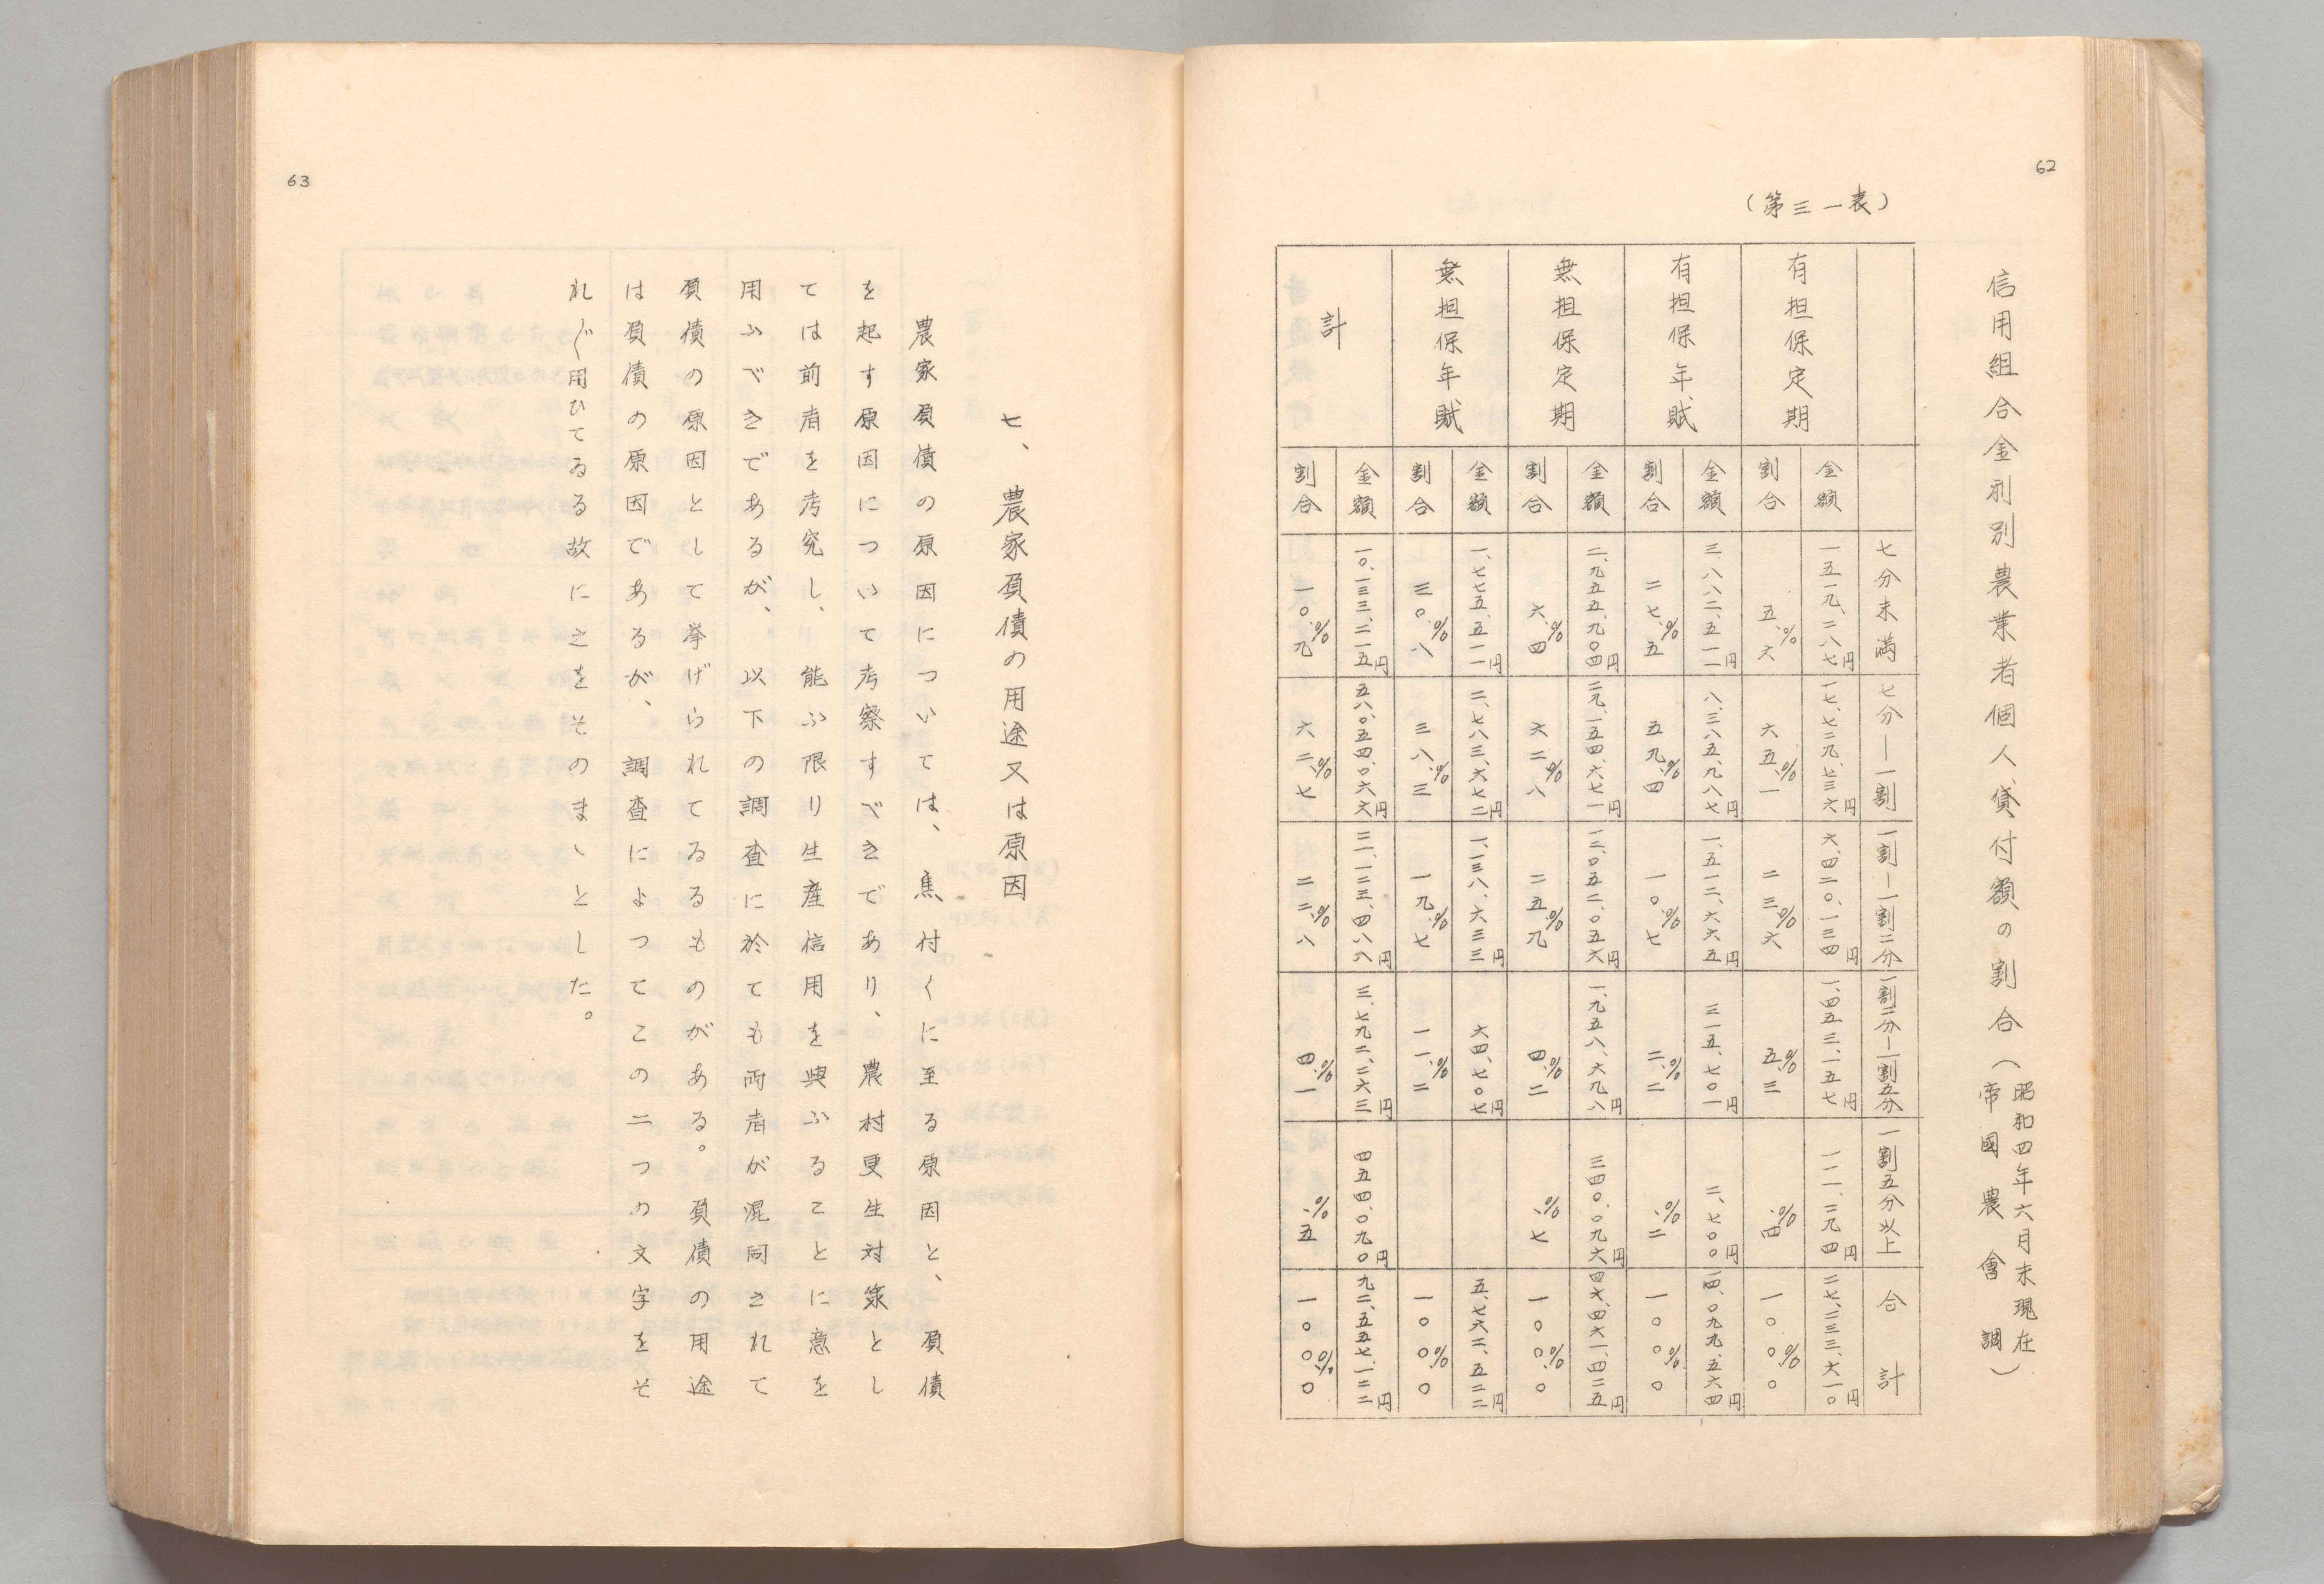 62
信用組合金利別農業者個人貸付額の割合（昭和四年六月末現在
帝國農會調）
（第三一表）
七分未満 七分―一割 一割―一割二分 一割二分―一割五分 一割五分以上 合計
有担保定期 金額 一五一九、二八七円 一七、七二九、七三六円 六、四二〇、一三四円 一、四五三、一五七円 一一一、二九四円 二七、二三三、六一〇円
割合 五、％六 六五、％一 二三、％六 五、％三 、％四 一〇〇、％〇
有担保年賦 金額 三、八八二、五一一円 八、三八五、九八七円 一、五一二、六六五円 三一五、七〇一円 二、七〇〇円 一四、〇九九、五六四円
割合 二七、％五 五九、％四 一〇、％七 二、％二 、％二 一〇〇、％〇
無担保定期 金額 二、九五五、九〇四円 二九、一五四、六七一円 一二、〇五二、〇五六円 一、九五八、六九八円 三四〇、〇九六円 四六、四六一、四二五円
割合 六、％四 六二、％八 二五、％九 四、％二 、％七 一〇〇、％〇
無担保年賦 金額 一、七七五、五一一円 二、七八三、六七二円 一、一三八、六三三円 六四、七〇七円 五、七六二、五二二円
割合 三〇、％八 三八、％三 一九、％七 一一、％二 一〇〇、％〇
計 金額 一〇、一三三、二一五円 五八、〇五四、〇六六円 二一、一二三、四八八円 三、七九二、二六三円 四五四、〇九〇円 九二、五五七、一二二円
割合 一〇、％九 六二、％七 二二、％八 四、％一 、％五 一〇〇、％〇
63
七、農家負債の用途又は原因
農家負債の原因については、焦付くに至る原因と、負債
を起す原因について考察すべきであり、農村更生対策とし
ては前者を考究し、能ふ限り生産信用を與ふることに意を
用ふべきであるが、以下の調査に於ても両者が混同されて
負債の原因として挙げられてゐるものがある。負債の用途
は負債の原因であるが、調査によつてこの二つの文字をそ
れ〴〵用ひてゐる故に之をそのまゝとした。